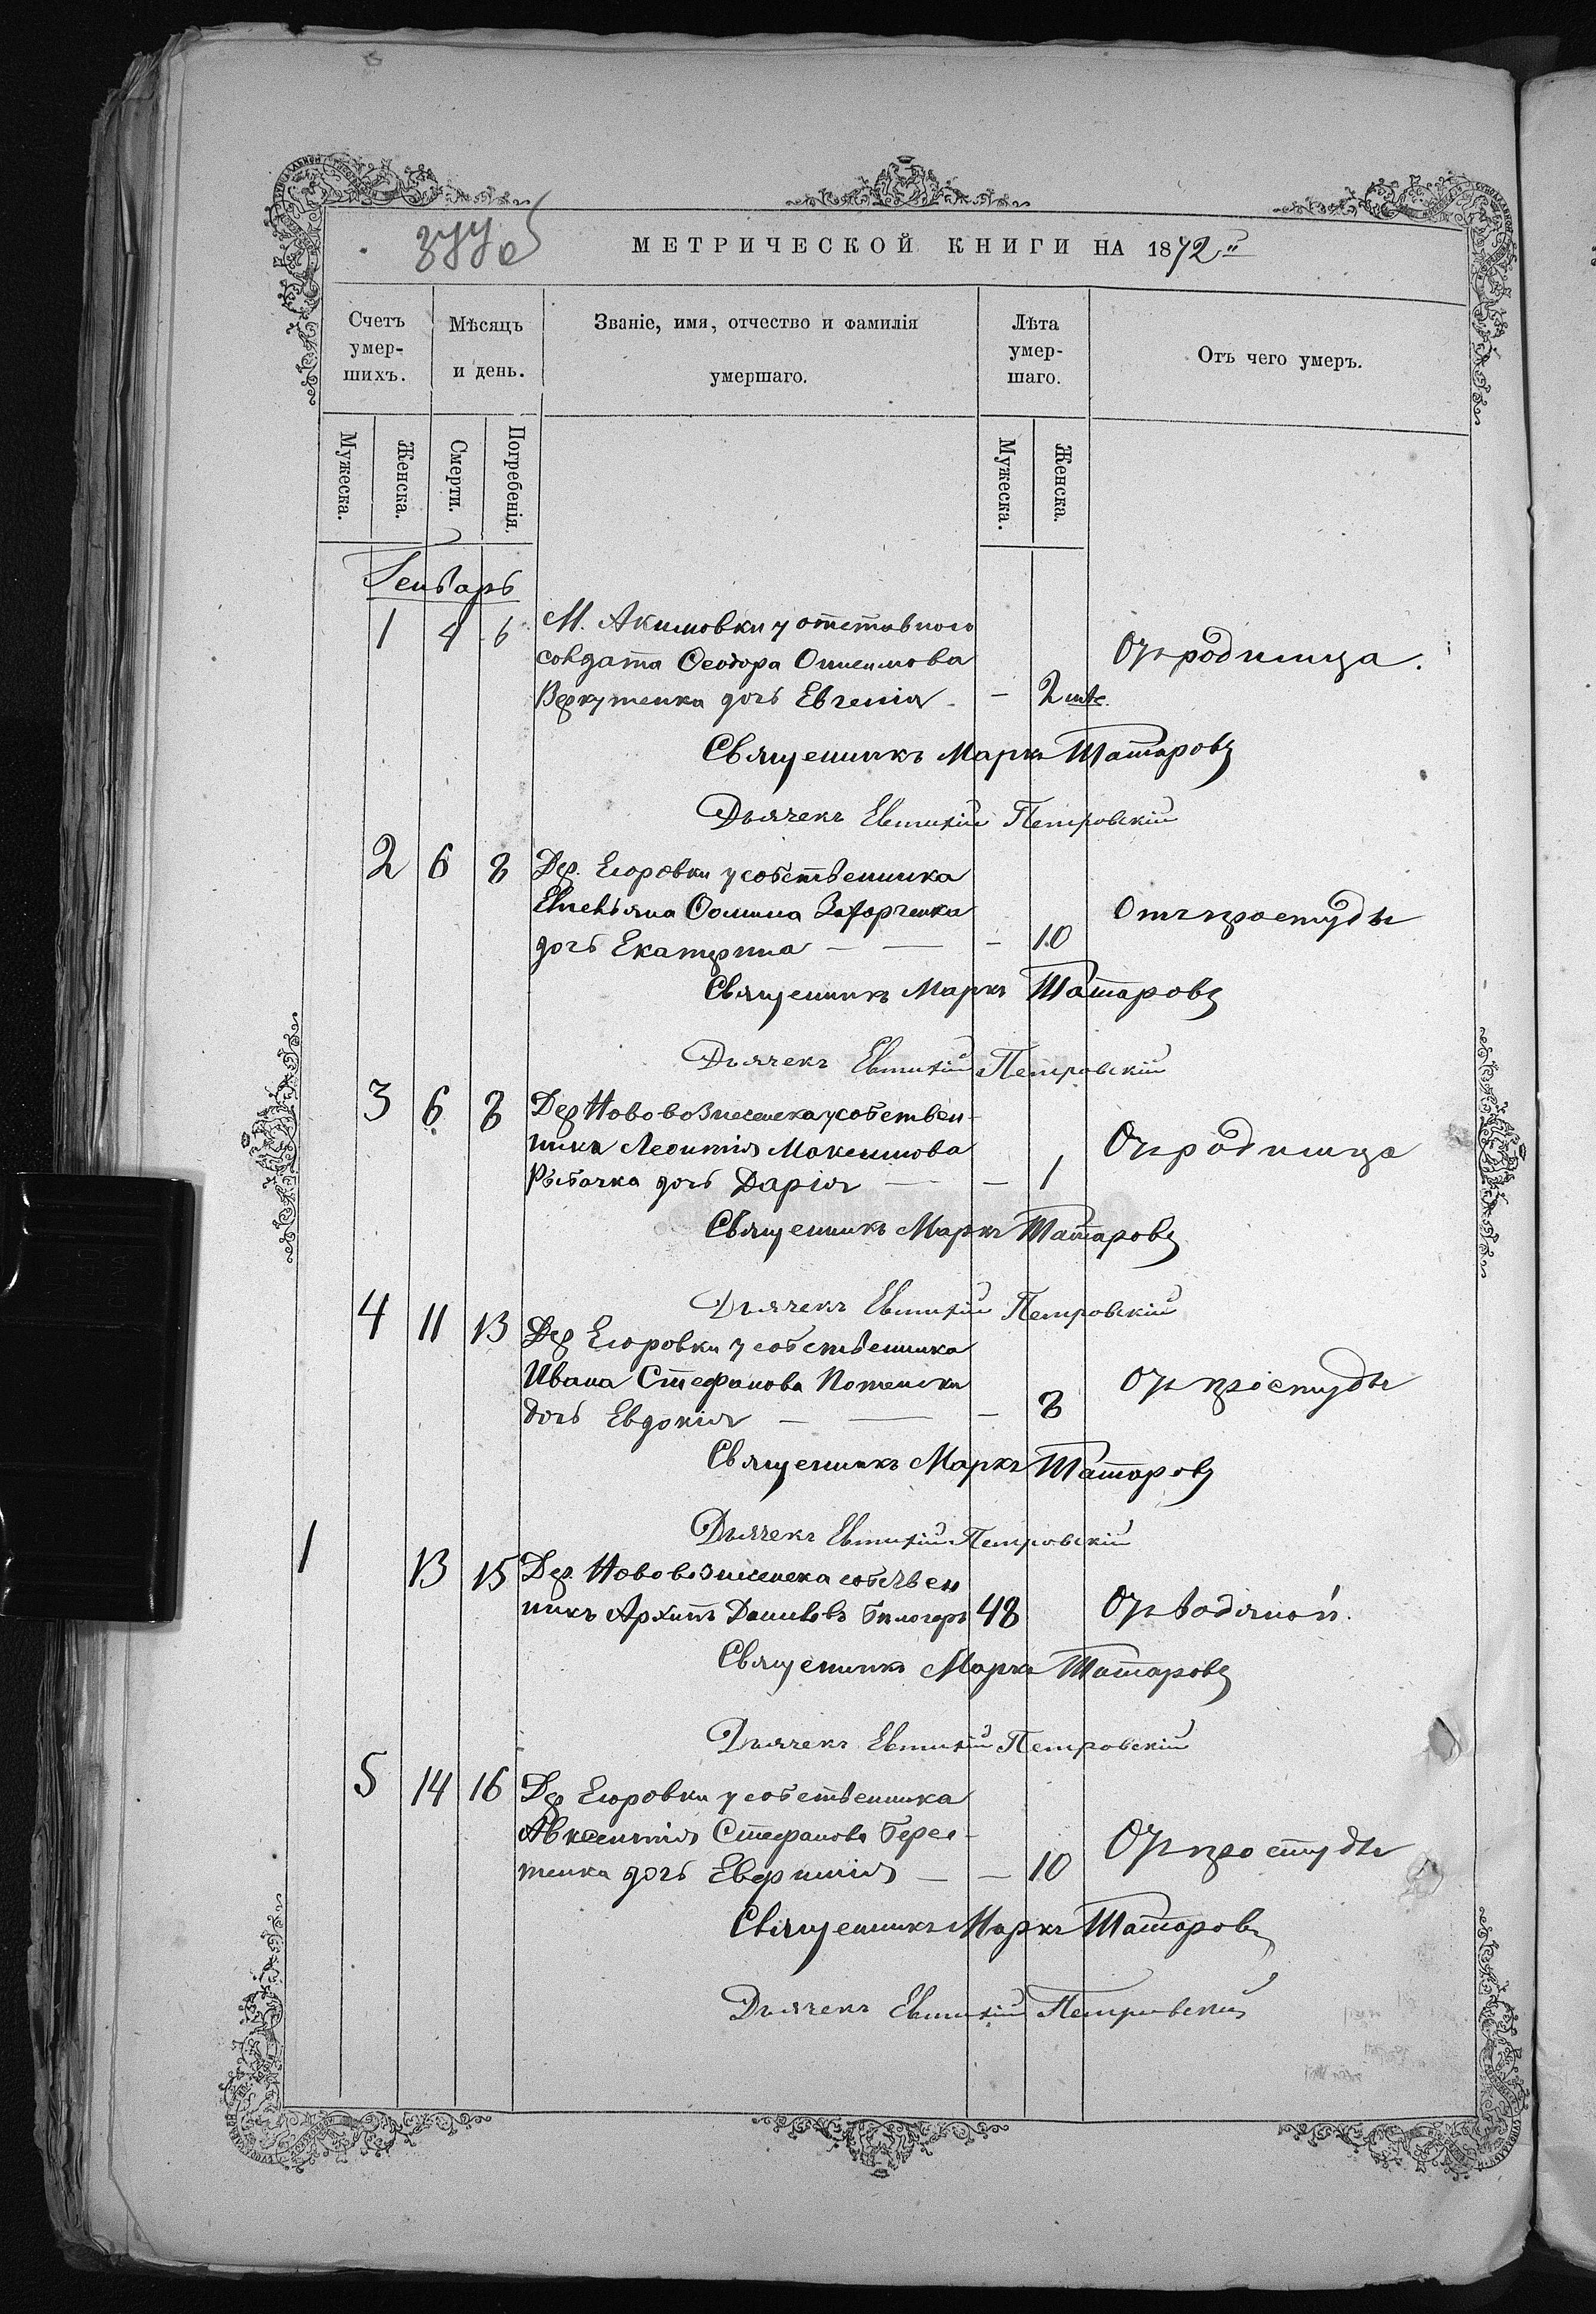 МЕТРИЧЕСКОЙ КНИГИ НА 1872й
Счетъ умер-шихъ.
Мѣсяцъ и день.
Званіе, имя, отчество и фамилія умершаго.
Лѣта умер-шаго.
Отъ чего умеръ.
Мужеска.
Женска.
Смерти.
Погребенія.
Мужеска.
Женска.
Генварь
1 4 6 М. Акимовки у отставного
солдата Ѳеодора Онисимова
Веркутенка дочь Евгенія - 2 мѣс. Отъ родимца.
Священникъ Маркъ Татаровъ
Дьячекъ Евтихій Петровскій
2 6 8 Дер. Егоровки у собственника
Емельяна Ѳомина Захорченка
дочь Екатерина — — - 10 Отъ простуды
Священникъ Маркъ Татаровъ
Дьячекъ Евтихій Петровскій
3 6 8 Дер Нововознесенска у собствен-
ника Леонтія Максимова
Рыбачка дочь Дарія — - 1 Отъ родимца
Священникъ Маркъ Татаровъ
Дьячекъ Евтихій Петровскій
4 11 13 Дер Егоровки у собственника
Ивана Стефанова
дочь Евдокія — — - 8 Отъ простуды
Священникъ Маркъ Татаровъ
Дьячекъ Евтихій Петровскій
1 13 15 Дер. Нововознесенска собствен
никъ Архипъ Даниловъ 48 Отъ водяной.
Священникъ Маркъ Татаровъ
Дьячекъ Евтихій Петровскій
5 14 16 Дер Егоровки у собственника
Авксентія Стефанова Бере-
тенка дочь Евфимія — - 10 Отъ простуды
Священникъ Маркъ Татаровъ
Дьячекъ Евтихій Петровскій